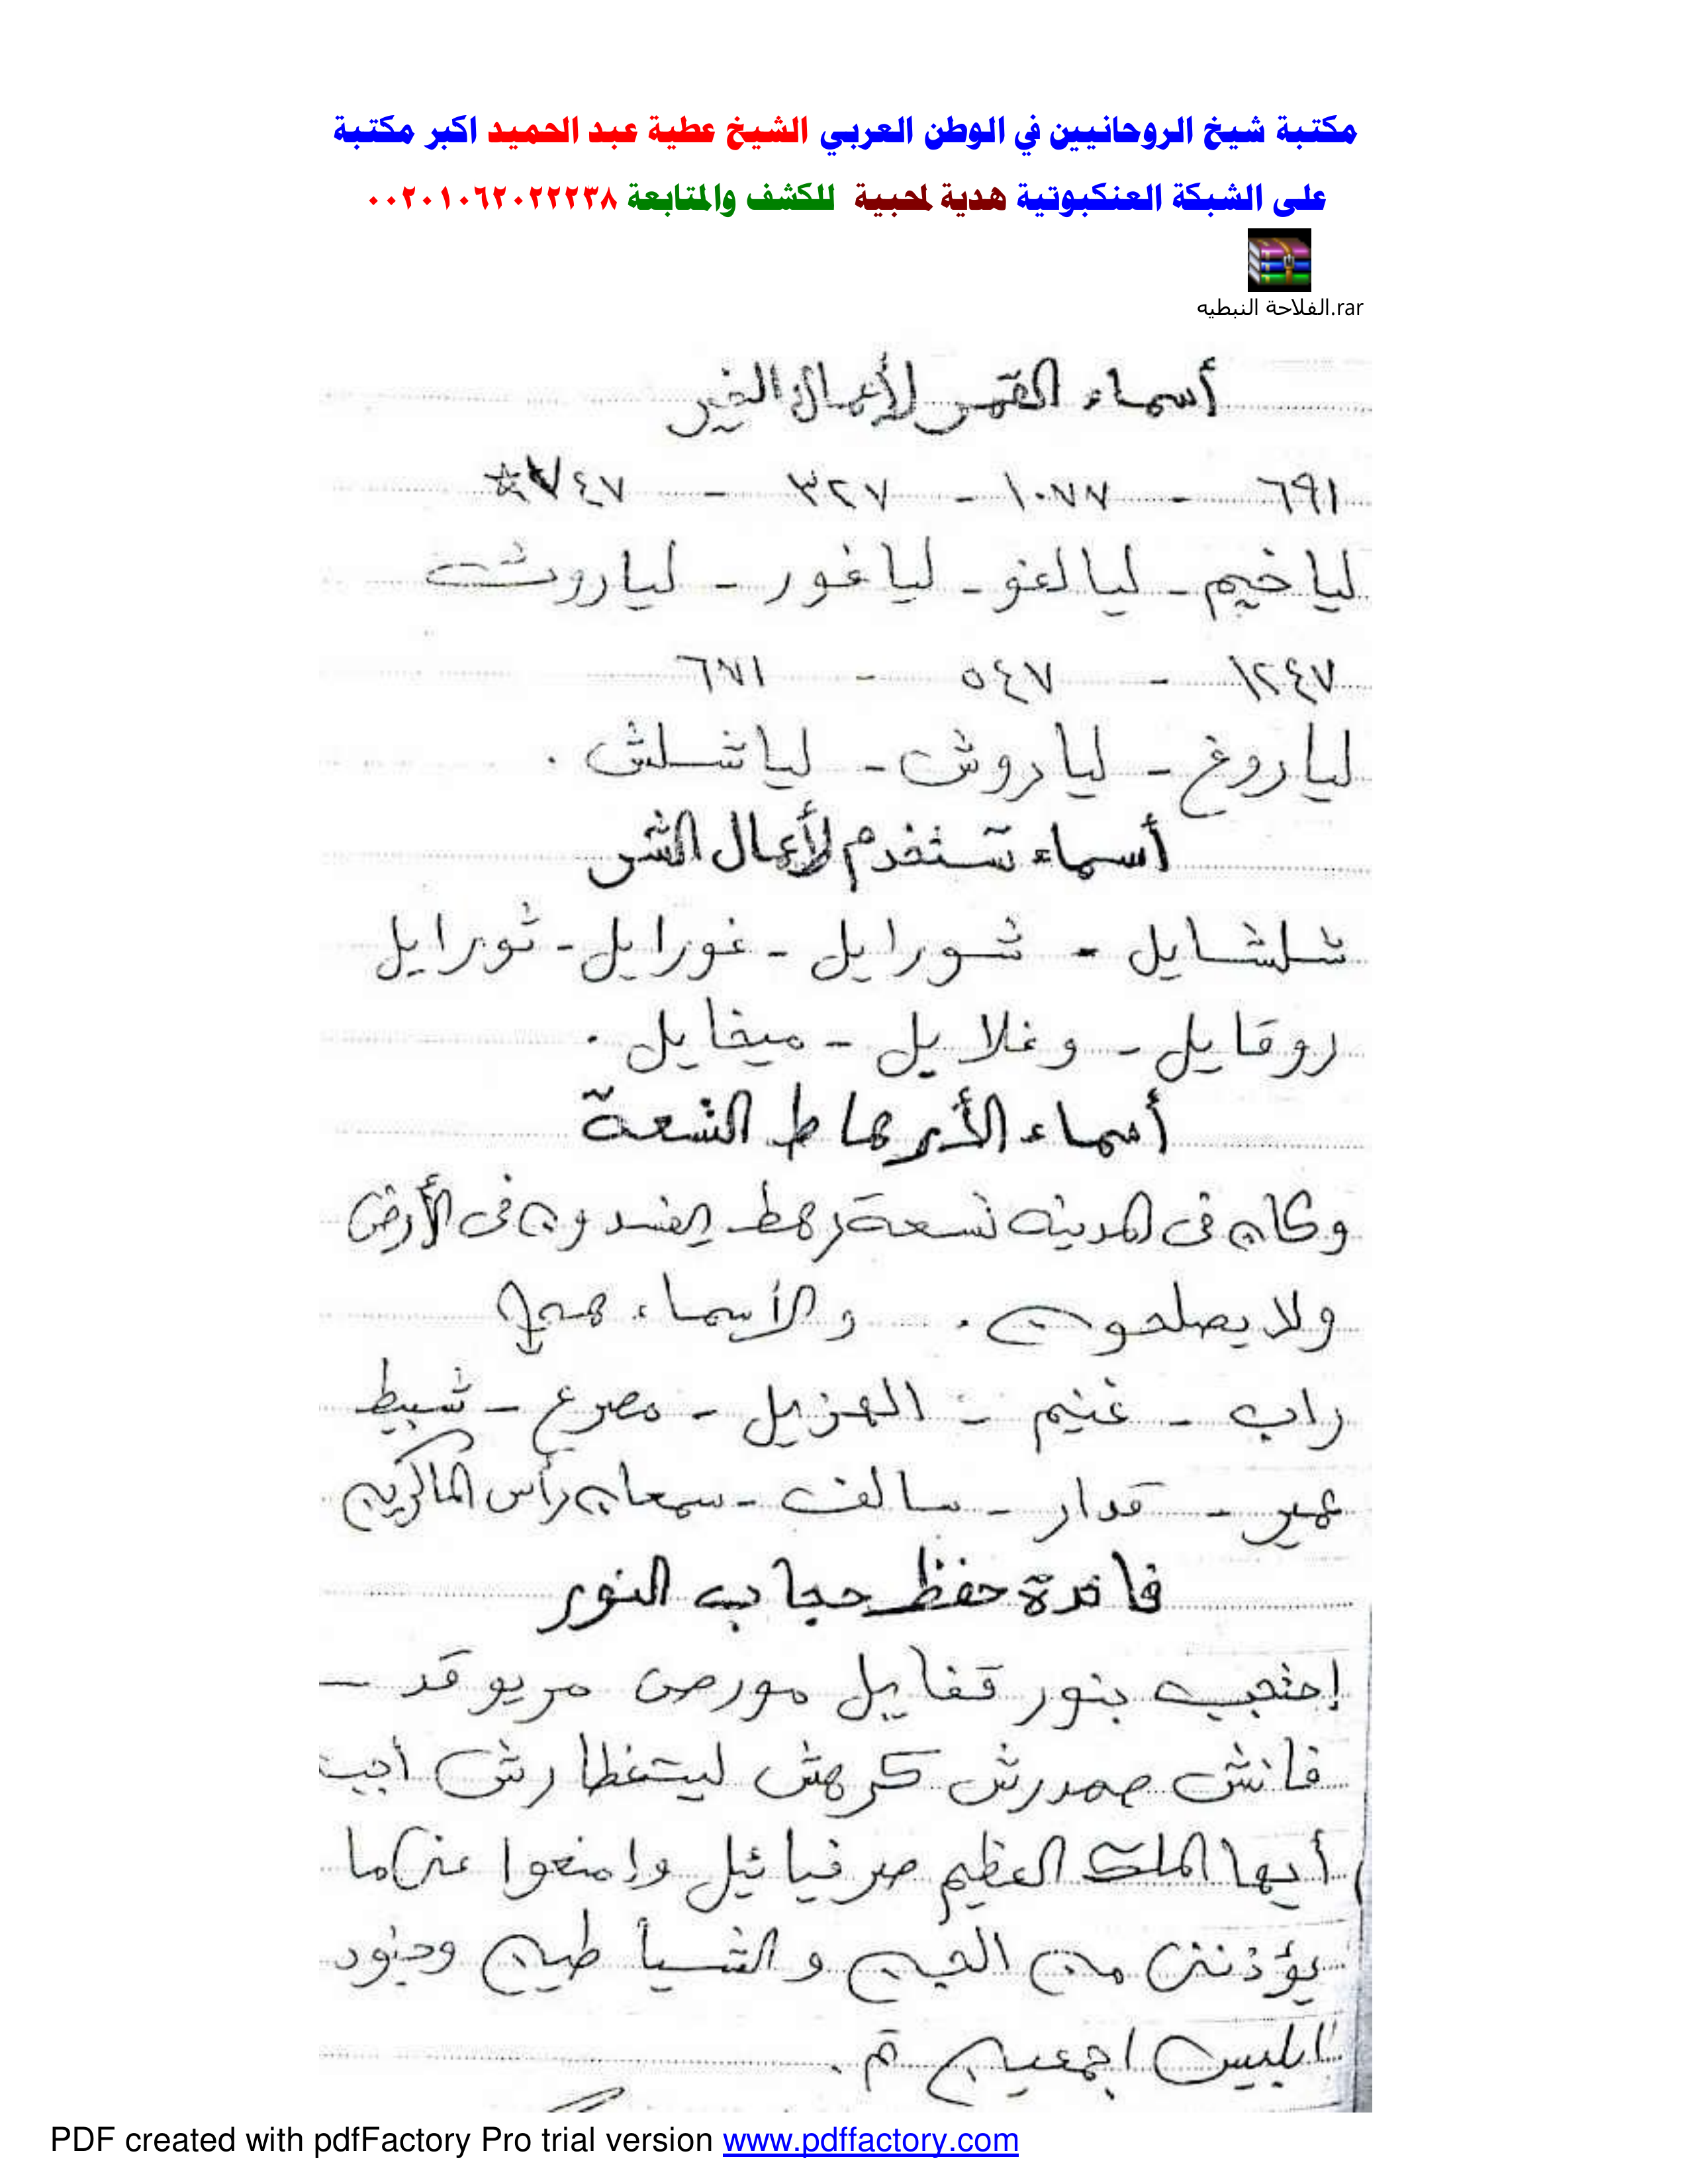 مكتبة شيخ الروحانيين في الوطن العربي الشيخ عطية عبد الحميد اكبر مكتبة
على الشبكة العنكبوتية هدية لمحبية للكشف والمتابعة ٠٠٢٠١٠٦٢٠٢٢٢٣٨
الفلاحة النبطيه.rar
أسماء القمر لأعمال الخير
٦٩١ - ١٠٧٧ - ٣٢٧ - ٧٤٧
لياخيم - ليالغو - لياغور - لياروث
١٢٤٧ - ٥٤٧ - ٦٧١
لياروغ - لياروش - لياشلش .
أسماء تستخدم لأعمال الشر
شلشايل - شورايل - غورايل - ثورايل
روقايل - وغلايل - ميخايل .
أسماء الأرهاط التسعة
وكان فى المدينه تسعة رهط يفسدون فى الأرض
ولا يصلحون . والأسماء هى
راب - غنيم - الهزيل - مصرع - شبيط
عمير - قدار - سالف - سمعان رأس الماكرين
فائدة حفظ حجاب النور
إحتجب بنور قفايل مورص مريوقد -
فانش صمدرش كرهش ليتغظارش أجب
أيها الملك العظيم صرفيائيل وإمنعوا عنى ما
يؤذننى من الجن والشياطين وجنود
ابليس اجمعين تم .
PDF created with pdfFactory Pro trial version www.pdffactory.com